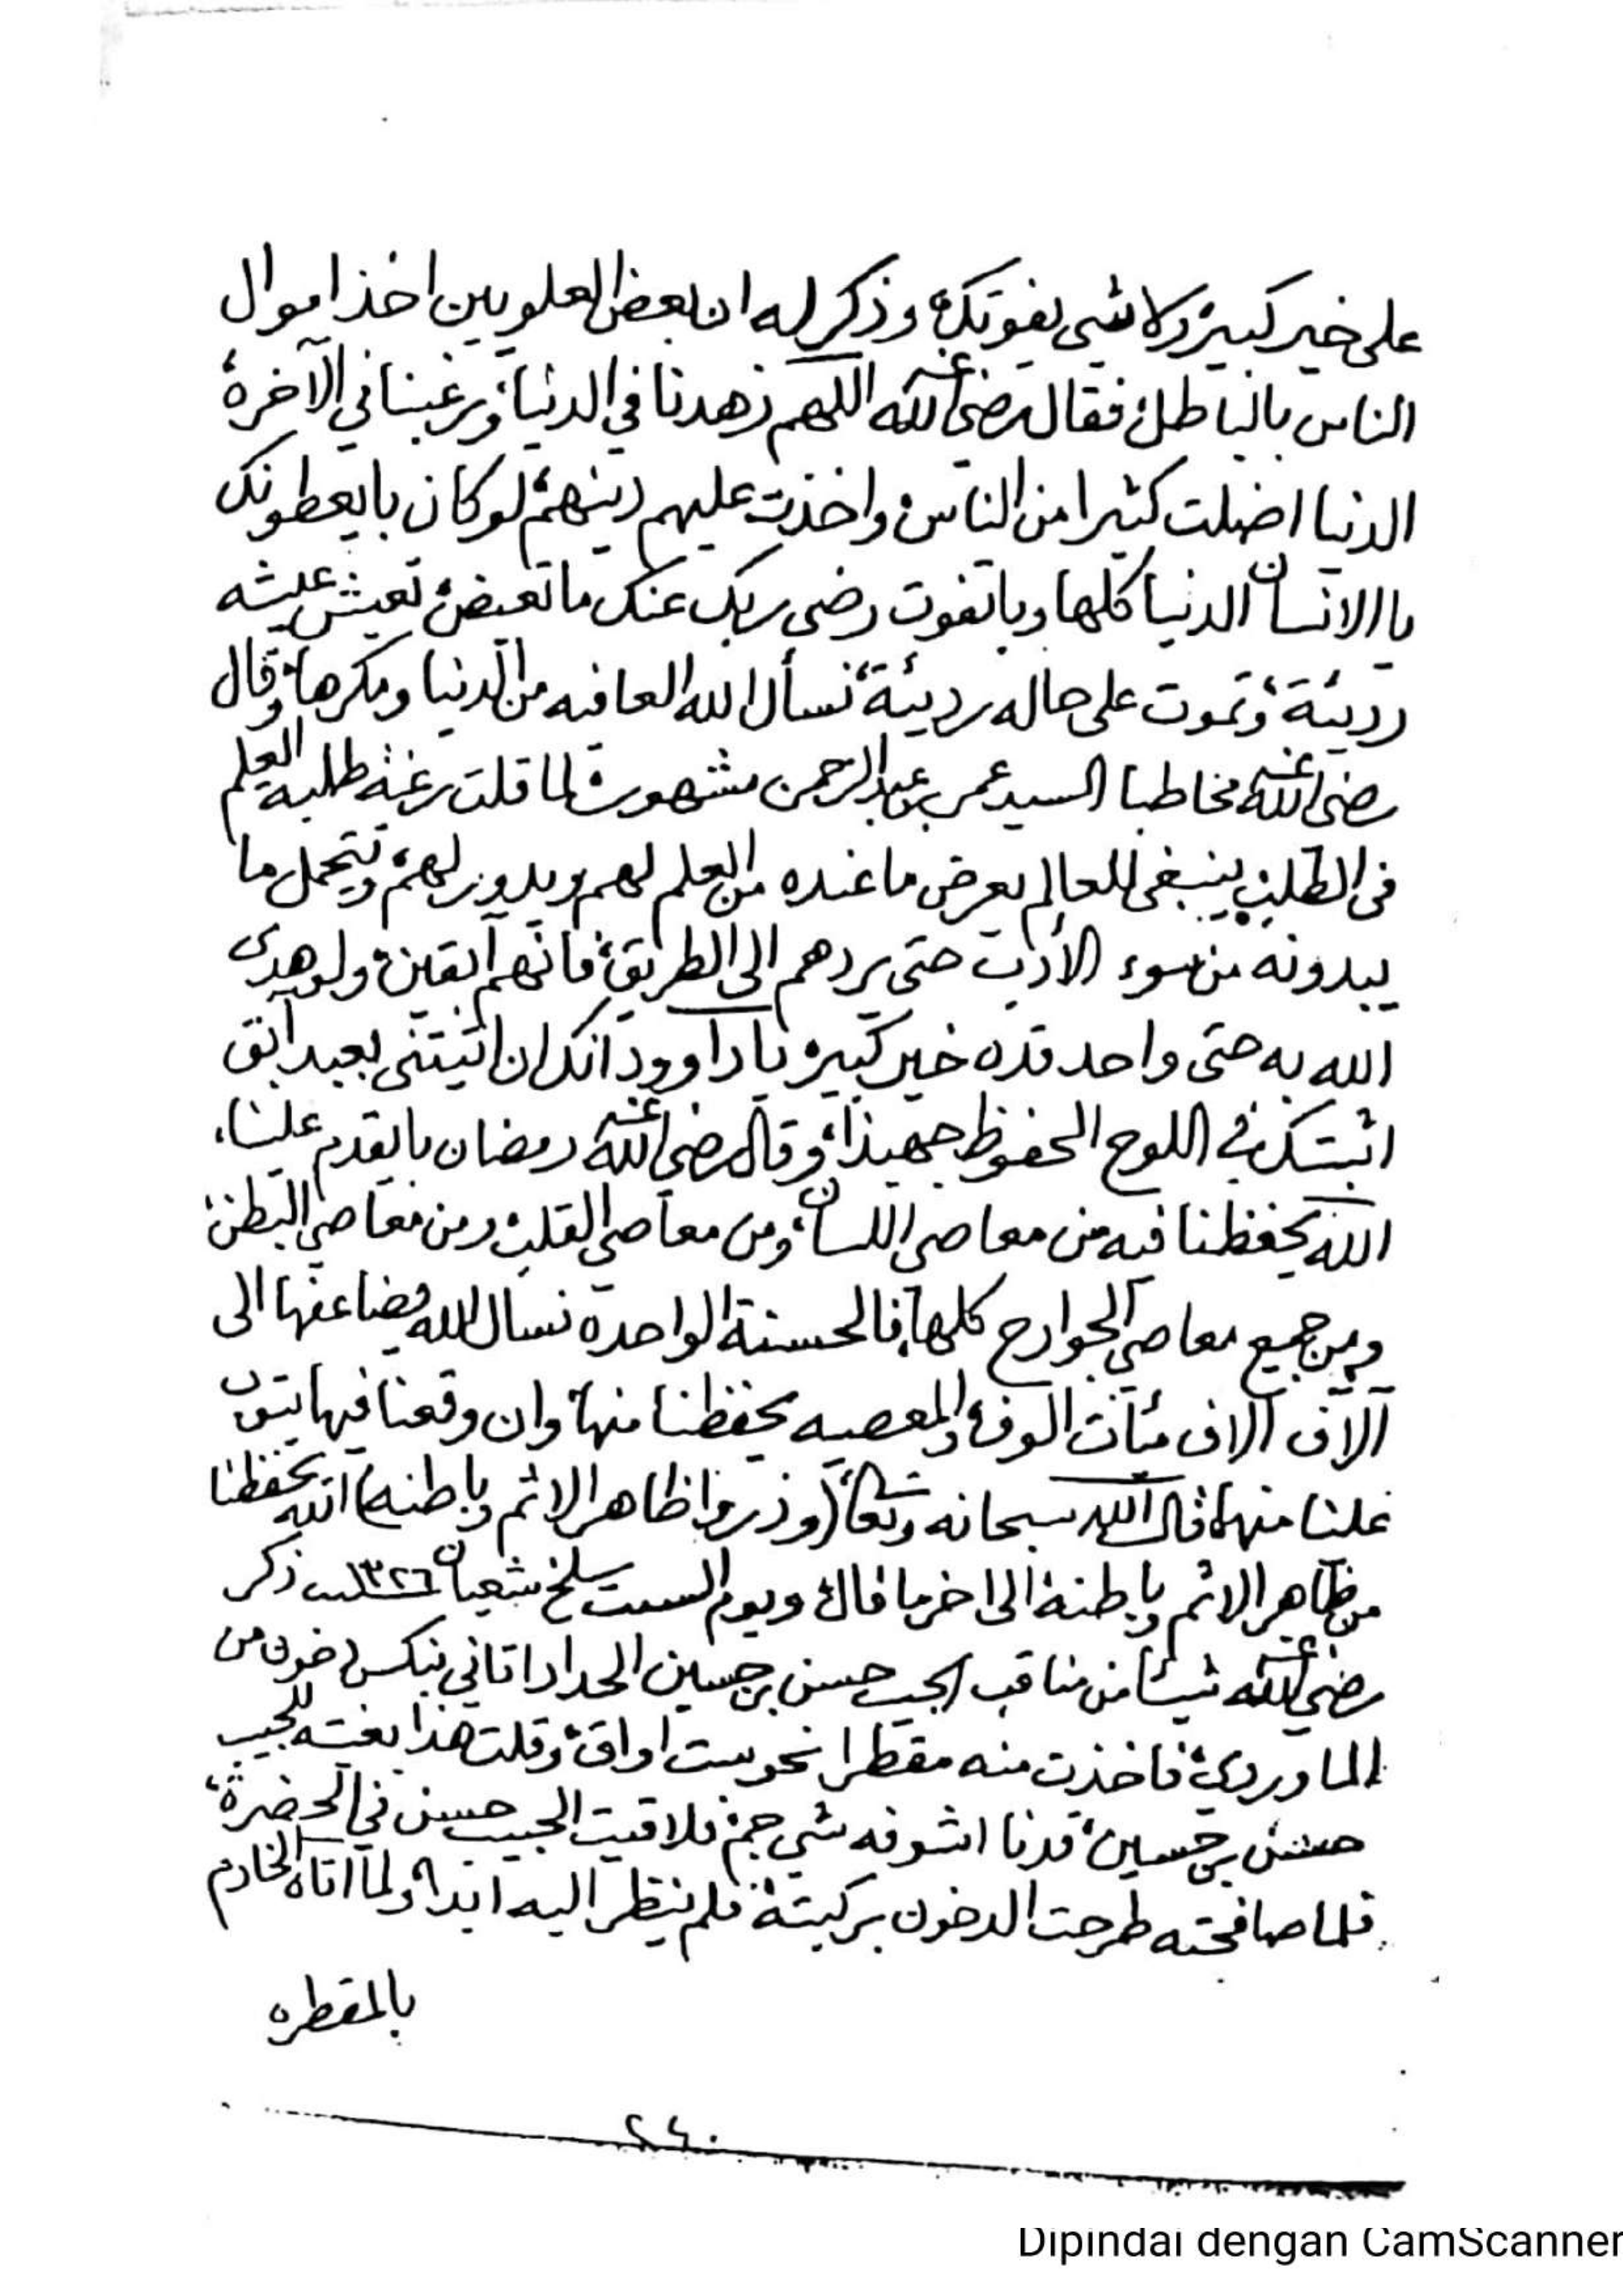 على خير كبير ولا شي يفوتك، وذكر له ان بعض العلويين اخذ اموال
الناس بالباطل، فقال رضي الله عنه اللهم زهدنا في الدنيا، ورغبنا في الآخرة
الدنيا اضلت كثيرا من الناس، واخذت عليهم دينهم، لو كان با يعطونك
يا الانسان الدنيا كلها وبا تفوت رضى ربك عنك ما تعيض، تعيش عيشه
رديئة، وتموت على حاله رديئة، نسأل الله العافيه من الدنيا ومكرها، وقال
رضي الله عنه مخاطبا السيد عمر بن عبدالرحمن مشهور، لما قلت رغبة طلبة العلم
في الطلب، ينبغي للعالم يعرض ما عنده من العلم لهم ويدور لهم، ويتحمل ما
يبدونه من سوء الأدب حتى يردهم الى الطريق، فانهم آبقين، ولو هدى
الله به حتى واحد قده خير كبير، يا داوود انك ان اتيتني بعبد آبق
اثبتك في اللوح المحفوظ جهبذا، وقال رضي الله عنه رمضان با يقدم علينا،
الله يحفظنا فيه من معاصي اللسان، ومن معاصي القلب، ومن معاصي البطن،
ومن جميع معاصي الجوارح كلها، فالحسنة الواحدة نسال الله يضاعفها الى
آلاف آلاف مئات الوف، والمعصيه يحفظنا منها، وان وقعنا فيها يتوب
علينا منها، قال الله سبحانه وتعالى (وذروا ظاهر الاثم وباطنه) الله يحفظنا
من ظاهر الاثم وباطنه، الى اخر ما قال، ويوم السبت سلخ شعبان ١٣٢٦ ذكر
رضي الله عنه شيئا من مناقب الحبيب حسن بن حسين الحداد اتاني بنكس دخون من
الماوردي، فاخذت منه مقطرا نحو ست اواق، وقلت هذا بغيته للحبيب
حسن بن حسين، قدنا اشوفه شي جم، فلاقيت الحبيب حسن في الحضرة،
فلما صافحته طرحت الدخون بركبته، فلم ينظر اليه ابدا، ولما اتاه الخادم
بالمقطره
٢٤٠
Dipindai dengan CamScanner